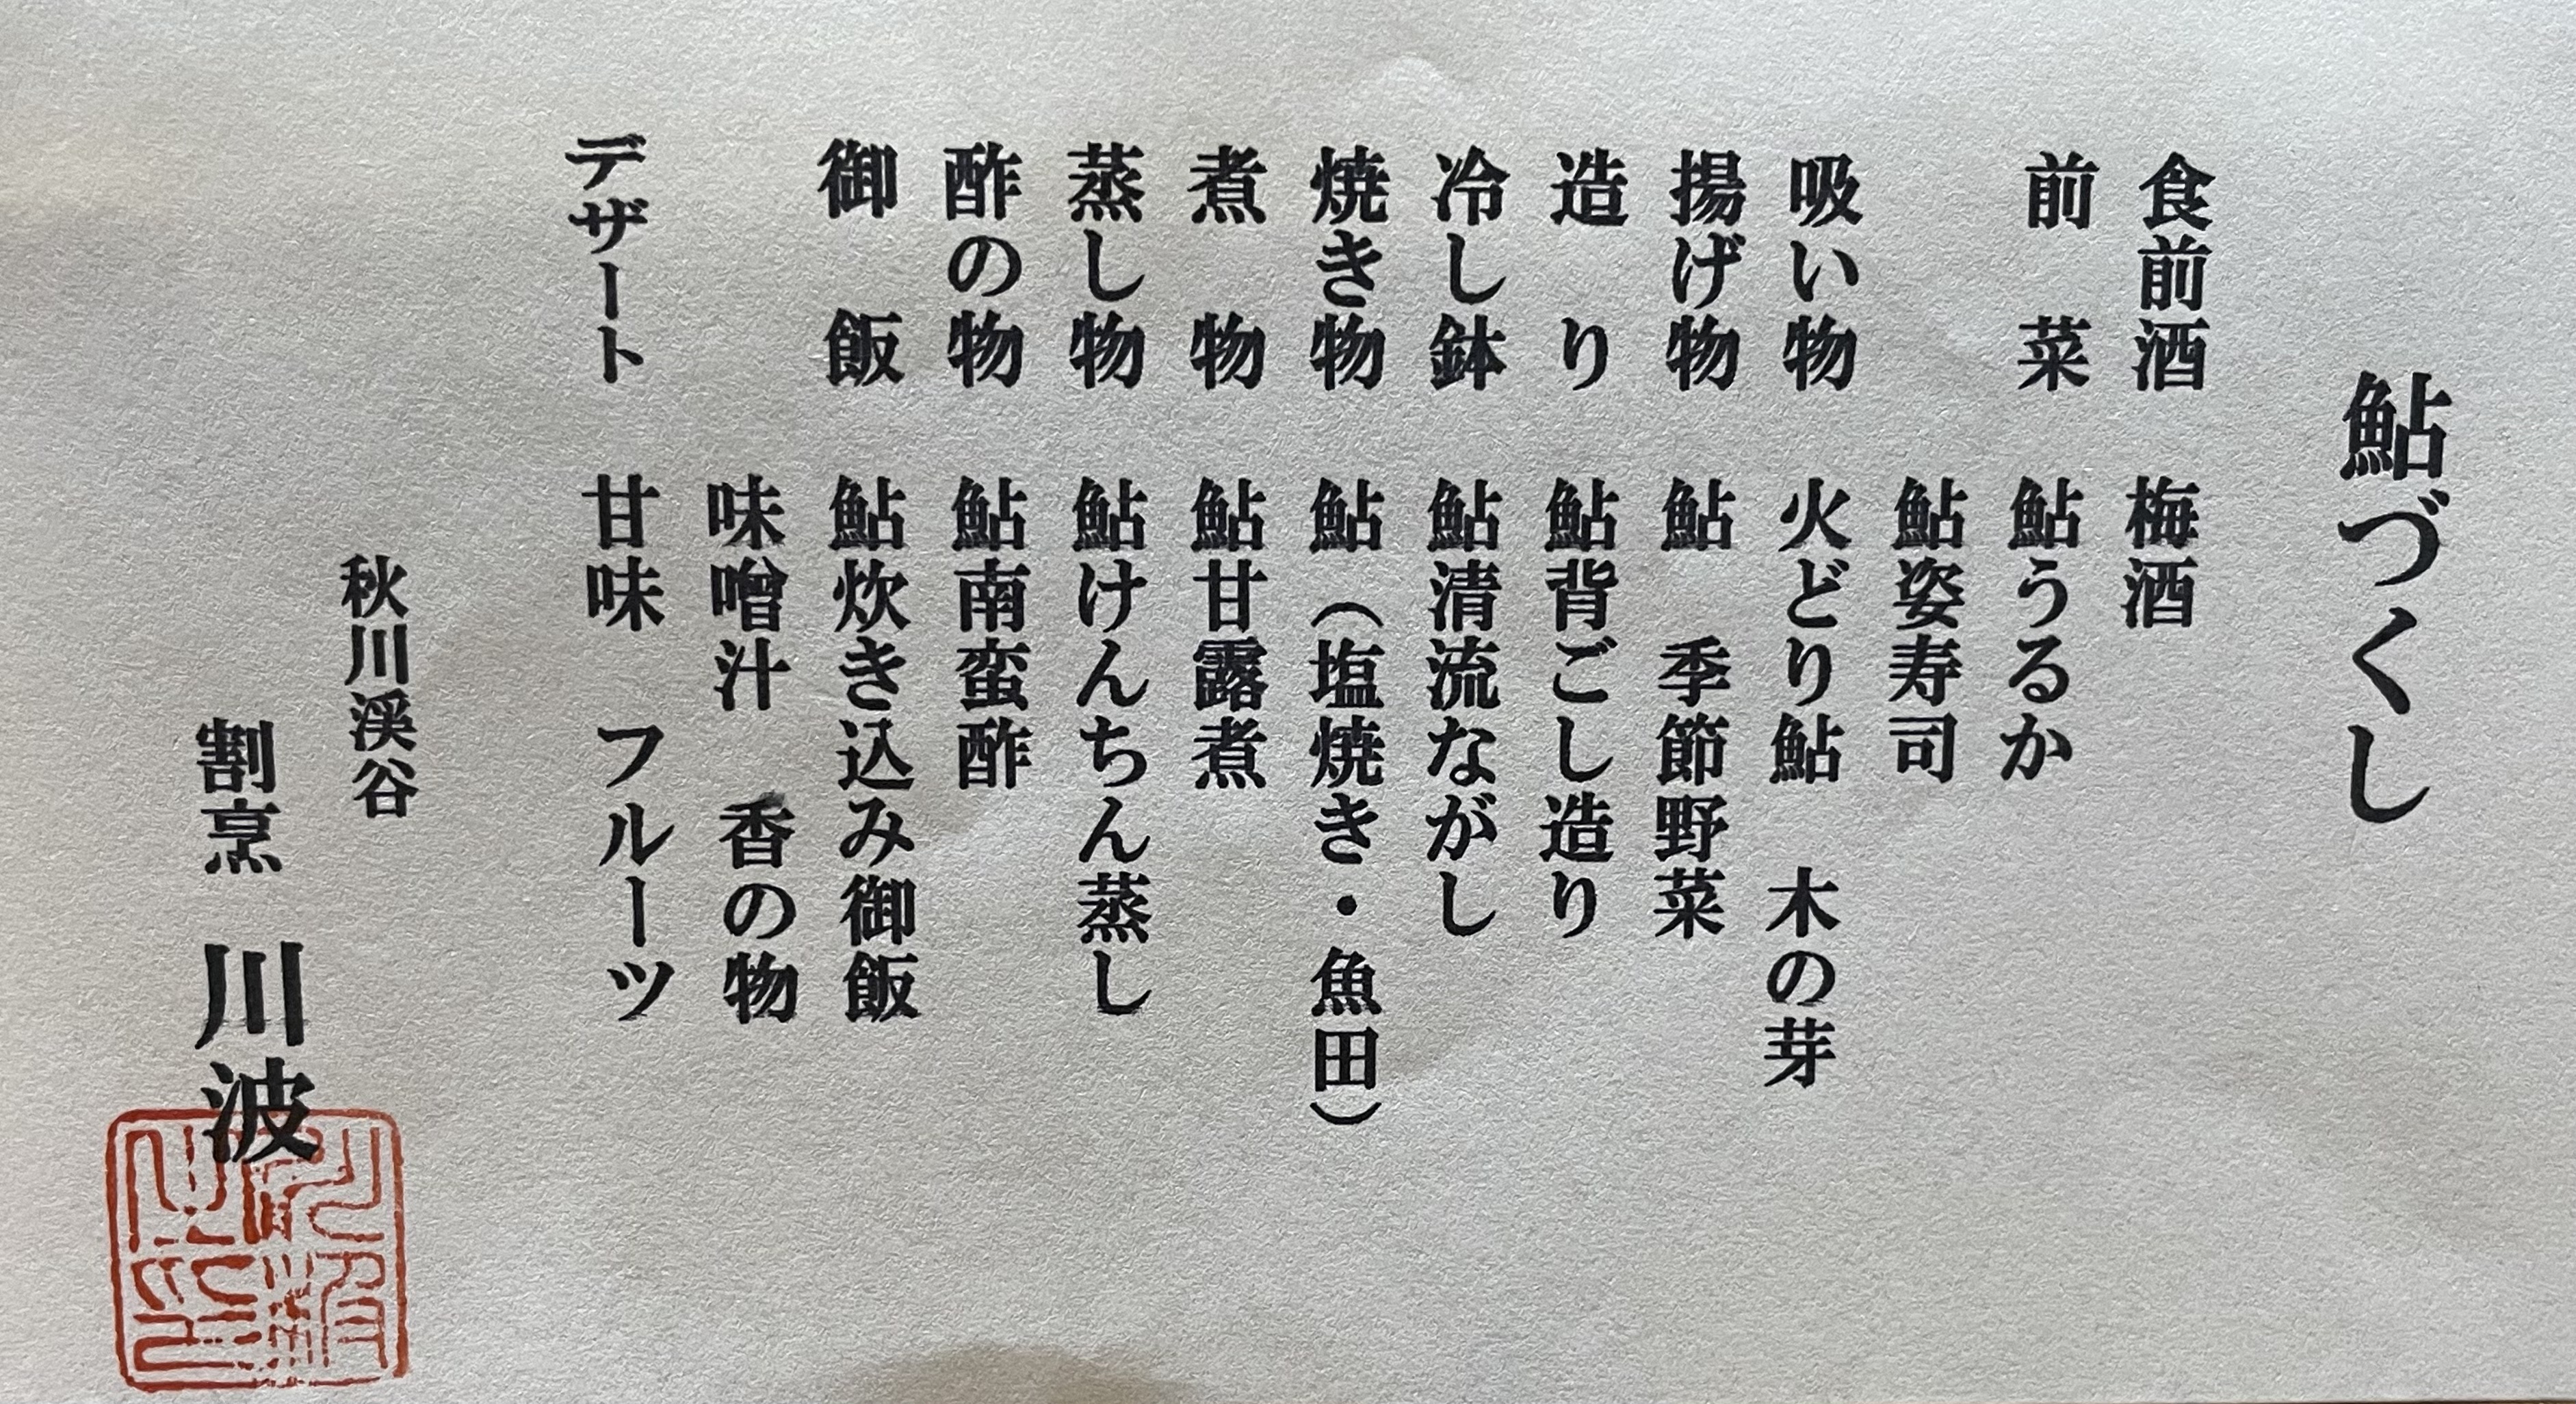 鮎づくし
食前酒　梅酒
前　菜　鮎うるか
鮎姿寿司
吸い物　火どり鮎　木の芽
揚げ物　鮎　季節野菜
造　り　鮎背ごし造り
冷し鉢　鮎清流ながし
焼き物　鮎（塩焼き・魚田）
煮　物　鮎甘露煮
蒸し物　鮎けんちん蒸し
酢の物　鮎南蛮酢
御　飯　鮎炊き込み御飯
味噌汁　香の物
デザート　甘味　フルーツ
秋川渓谷
割烹　川波